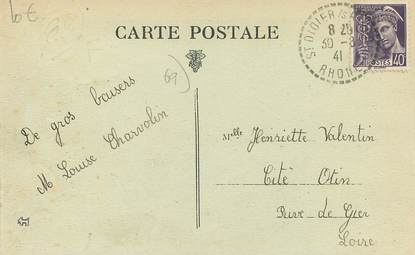 10€
CARTE POSTALE
ST DIDIER
8 20
30 -8
41
RHONE
POSTES 40
69)
De gros baisers
M Louise Charvolin
Melle Henriette Valentin
Cité Otin
Rive-de-Gier
Loire